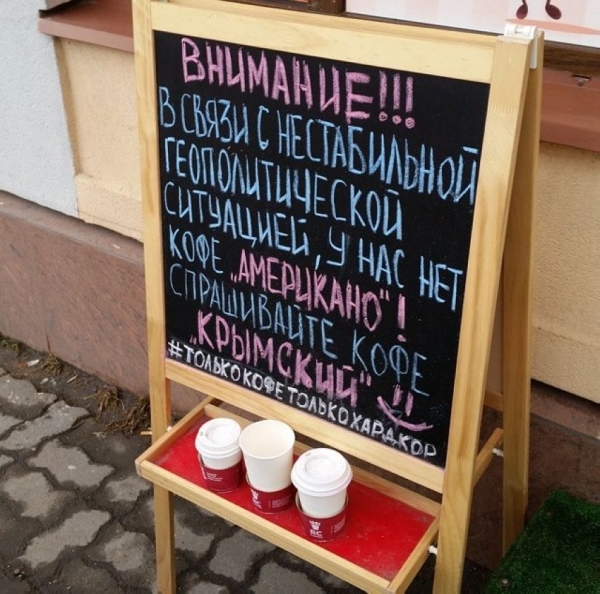 ВНИМАНИЕ!!!
В СВЯЗИ С НЕСТАБИЛЬНОЙ
ГЕОПОЛИТИЧЕСКОЙ
СИТУАЦИЕЙ, У НАС НЕТ
КОФЕ „АМЕРИКАНО"!
СПРАШИВАЙТЕ КОФЕ
„КРЫМСКИЙ"
#ТОЛЬКОКОФЕТОЛЬКОХАРДКОР